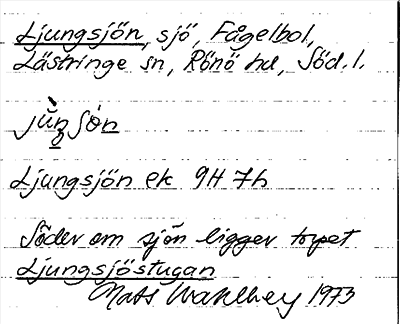 Ljungsjön, sjö, Fågelbol,
Lästringe sn, Rönö hd, Söd. l.
Ljungsjön ek 9H 7h
Söder om sjön ligger torpet
Ljungsjöstugan
Mats Wahlberg 1973